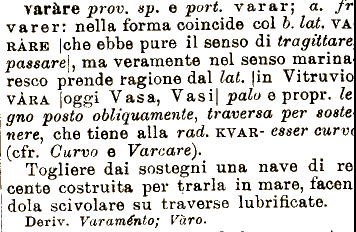 varàre prov. sp. e port. varar; a. fr
varer: nella forma coincide col b. lat. VA
RÀRE |che ebbe pure il senso di tragittare
passare|, ma veramente nel senso marina-
resco prende ragione dal lat. |in Vitruvio
VÀRA |oggi Vasa, Vasi| palo e propr. le
gno posto obliquamente, traversa per soste
nere, che tiene alla rad. KVAR- esser curvo
(cfr. Curvo e Varcare).
Togliere dai sostegni una nave di re
cente costruita per trarla in mare, facen
dola scivolare su traverse lubrificate.
Deriv. Varaménto; Vàro.